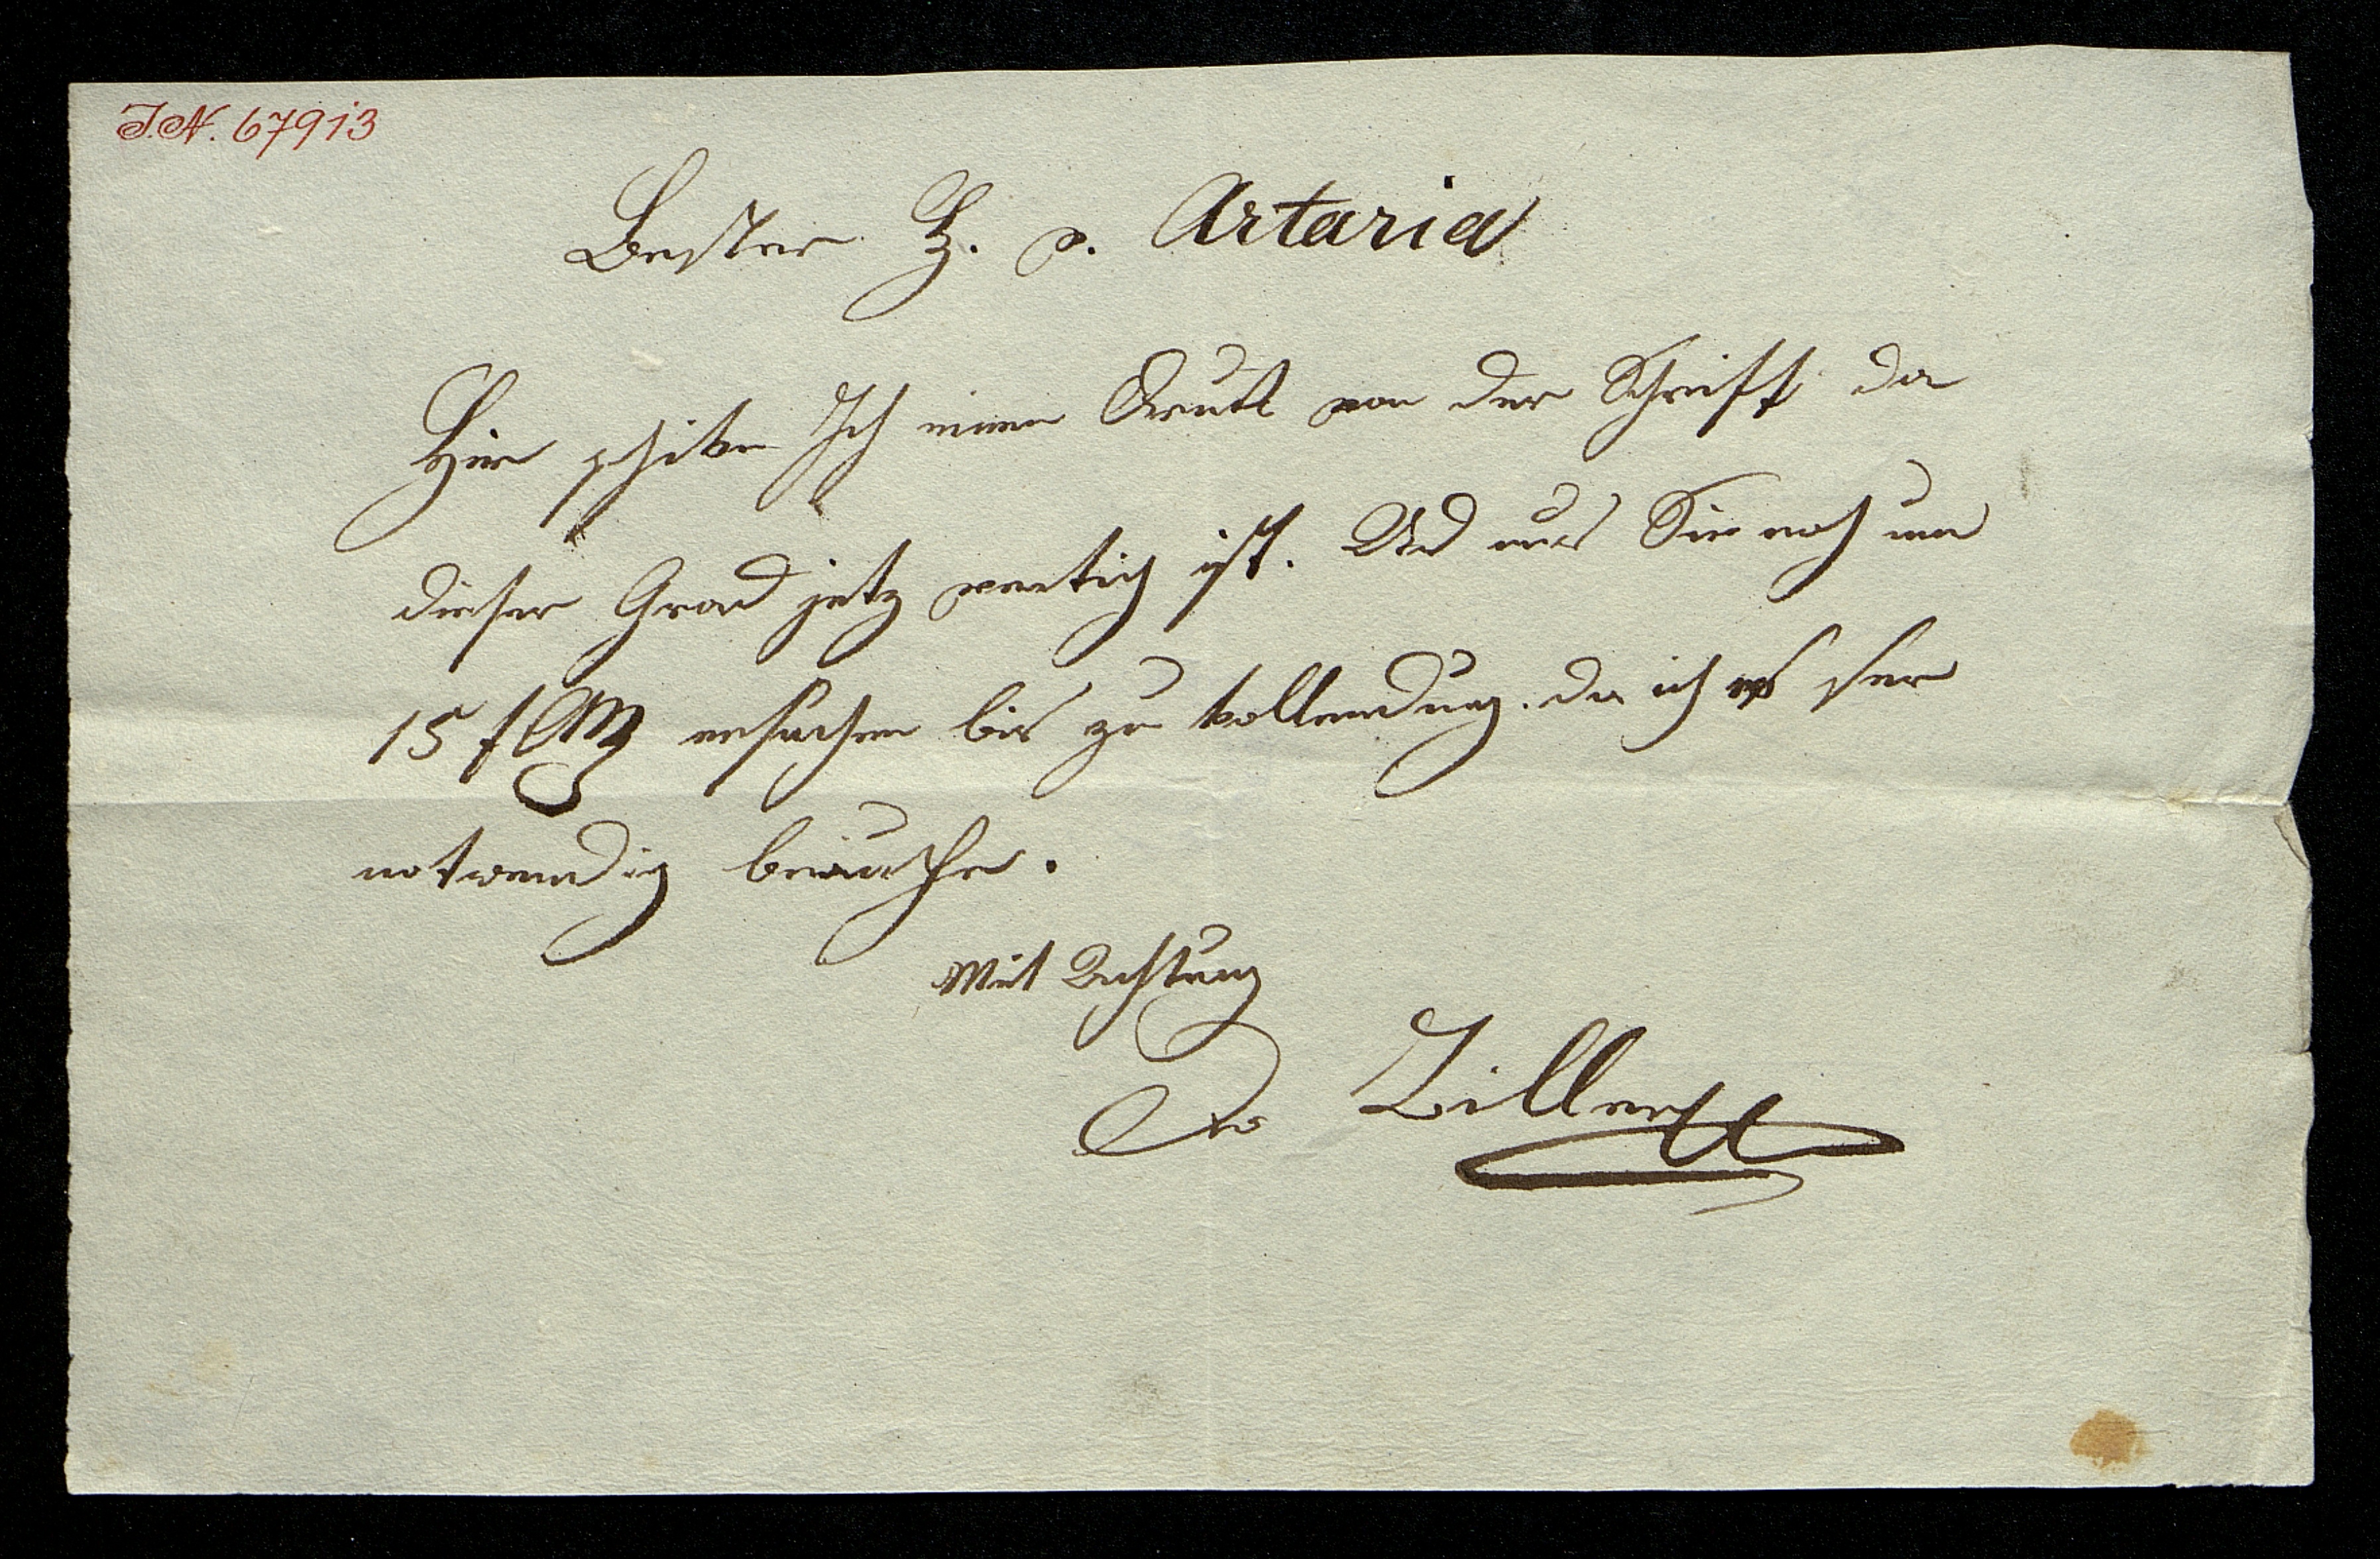 I.N. 67913
Bester H. v. Artaria
Hir schike Ich einen Druk von der Schrift da
dieser Grad jetz vertig ist. Und mus Sie noch um
15 f CMz ersuchen bis zu vollendung. da ich es ser
notwendig brauche.
Mit Achtung
Ziller